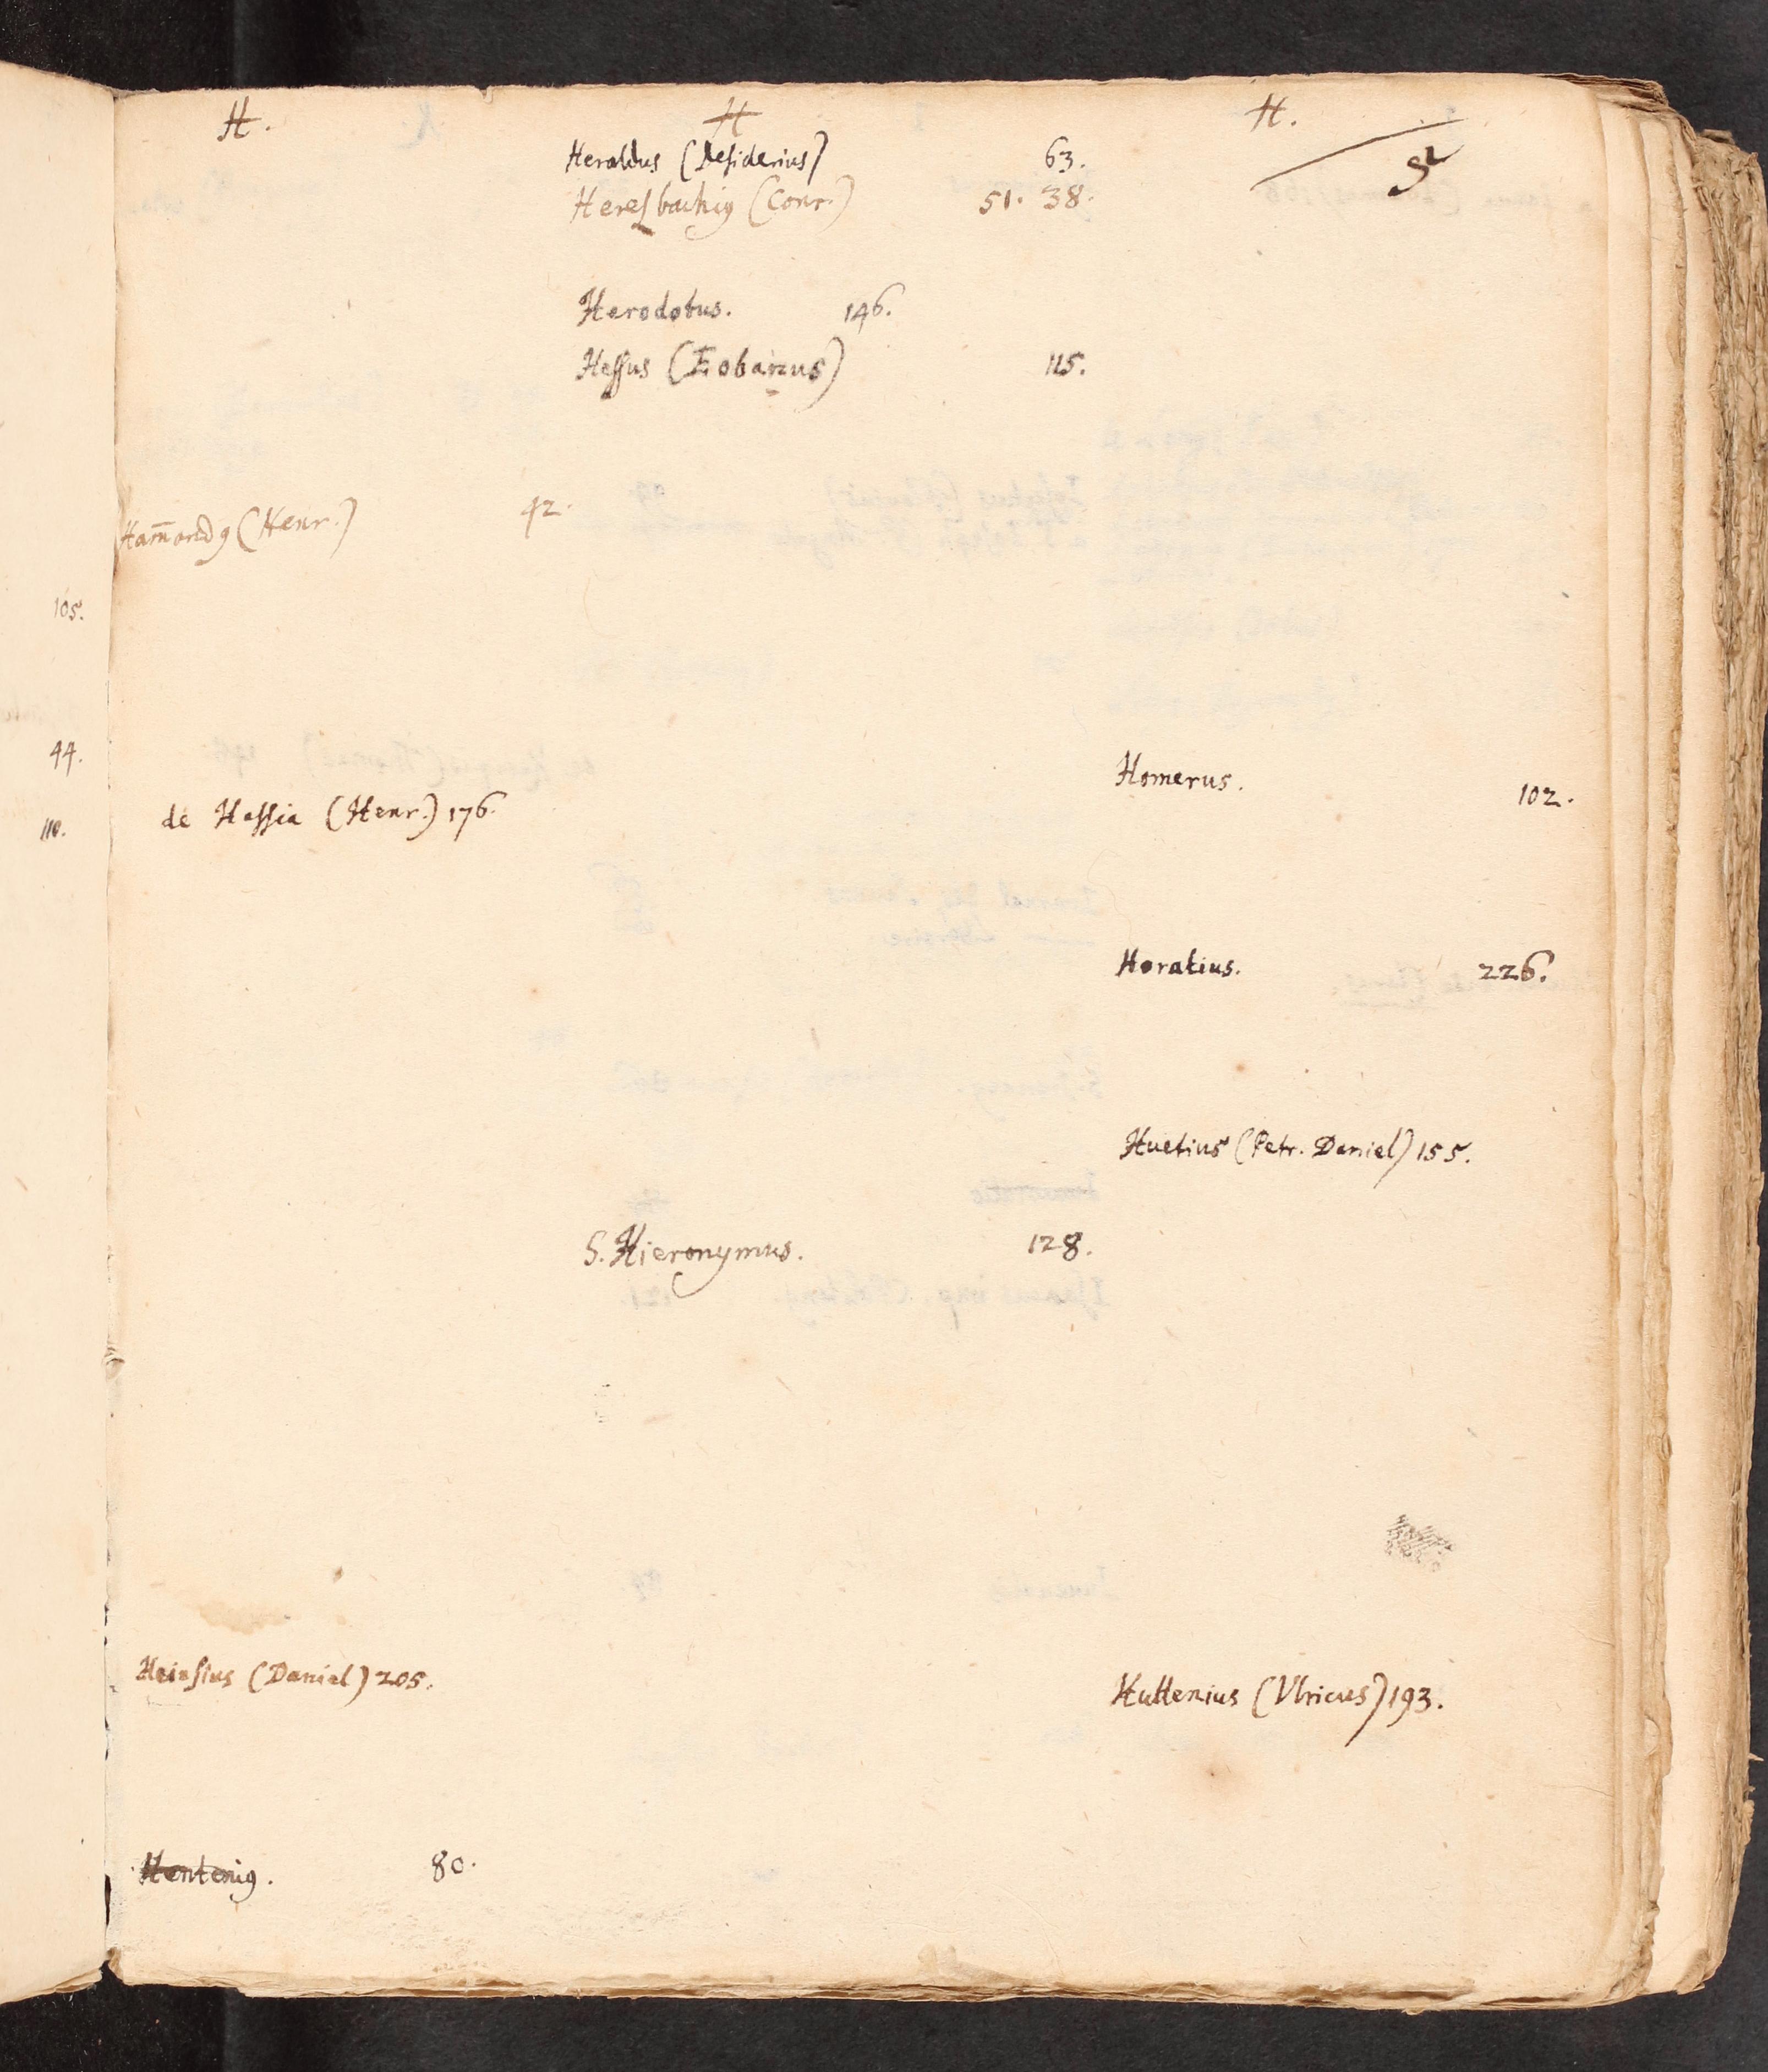 105.
44.
110.
H.
Ham̄ondꝯ (Henr.) 42.
de Hassia (Henr.) 176.
Heinsius (Daniel) 205.
Henteniꝯ. 80.
H
Heraldus (Desiderius) 63.
Heresbachiꝯ (Conr.) 51. 38.
Herodotus. 146.
Hessus (Eobanus) 115.
S. Hieronymus. 128.
H.
Homerus. 102.
Horatius. 226.
Huetius (Petr. Daniel) 155.
Huttenius (Vlricus) 193.